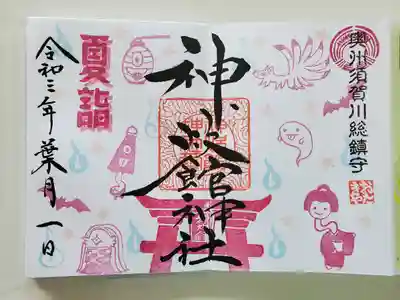 奥州須賀川総鎮守
神炊館神社
夏詣
令和三年葉月一日